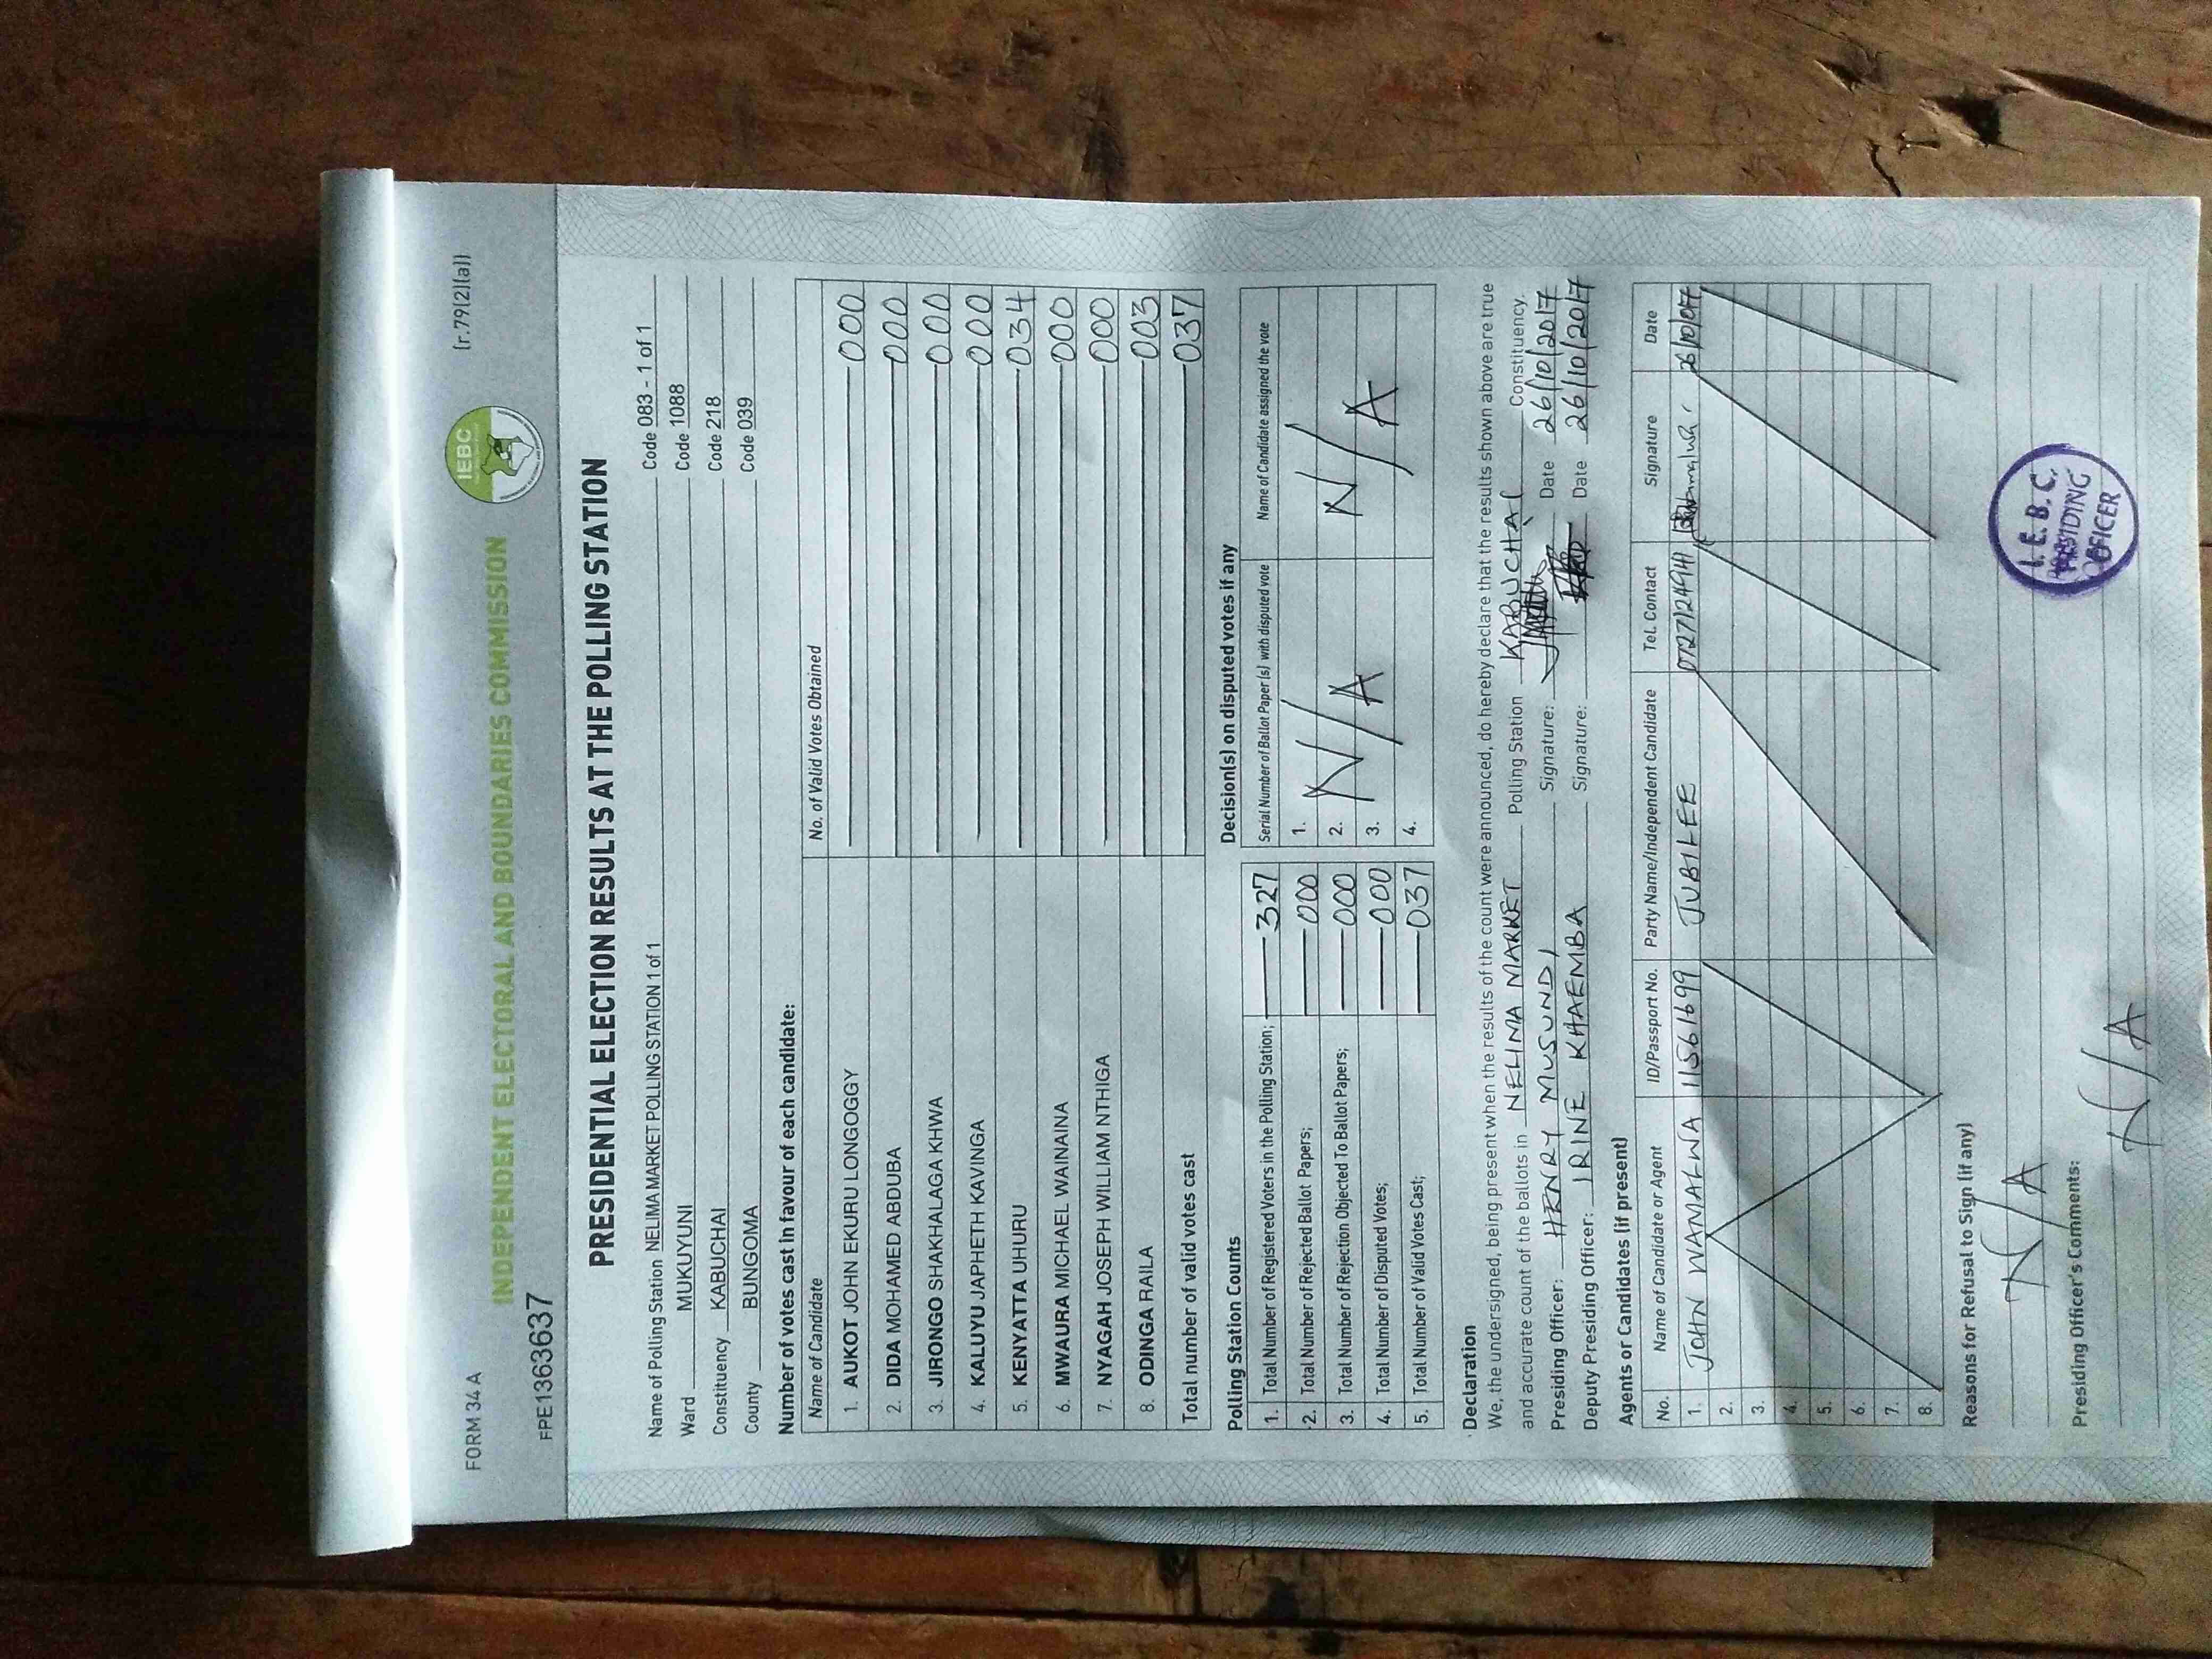 FORM 34 A
[r.79(2)(a)]
INDEPENDENT ELECTORAL AND BOUNDARIES COMMISSION
IEBC
FPE1363637
PRESIDENTIAL ELECTION RESULTS AT THE POLLING STATION
Name of Polling Station NELIMA MARKET POLLING STATION 1 of 1 Code 083 - 1 of 1
Ward MUKUYUNI Code 1088
Constituency KABUCHAI Code 218
County BUNGOMA Code 039
Number of votes cast in favour of each candidate:
Name of Candidate No. of Valid Votes Obtained
1. AUKOT JOHN EKURU LONGOGGY 000
2. DIDA MOHAMED ABDUBA 000
3. JIRONGO SHAKHALAGA KHWA 000
4. KALUYU JAPHETH KAVINGA 000
5. KENYATTA UHURU 034
6. MWAURA MICHAEL WAINAINA 000
7. NYAGAH JOSEPH WILLIAM NTHIGA 000
8. ODINGA RAILA 003
Total number of valid votes cast 037
Polling Station Counts
1. Total Number of Registered Voters in the Polling Station; 327
2. Total Number of Rejected Ballot Papers; 000
3. Total Number of Rejection Objected To Ballot Papers; 000
4. Total Number of Disputed Votes; 000
5. Total Number of Valid Votes Cast; 037
Decision(s) on disputed votes if any
Serial Number of Ballot Paper (s) with disputed vote Name of Candidate assigned the vote
1.
2. N/A N/A
3.
4.
Declaration
We, the undersigned, being present when the results of the count were announced, do hereby declare that the results shown above are true
and accurate count of the ballots in NELIMA MARKET Polling Station KABUCHAI Constituency.
Presiding Officer: HENRY MUSUNDI Signature: Date 26/10/2017
Deputy Presiding Officer: IRINE KHAEMBA Signature: Date 26/10/2017
Agents or Candidates (if present)
No. Name of Candidate or Agent ID/Passport No. Party Name/Independent Candidate Tel. Contact Signature Date
1. JOHN WAMALWA 11561699 JUBILEE
2.
3.
4.
5.
6.
7.
8.
Reasons for Refusal to Sign (if any)
N/A
Presiding Officer's Comments:
N/A
I.E.B.C.
PRESIDING
OFFICER